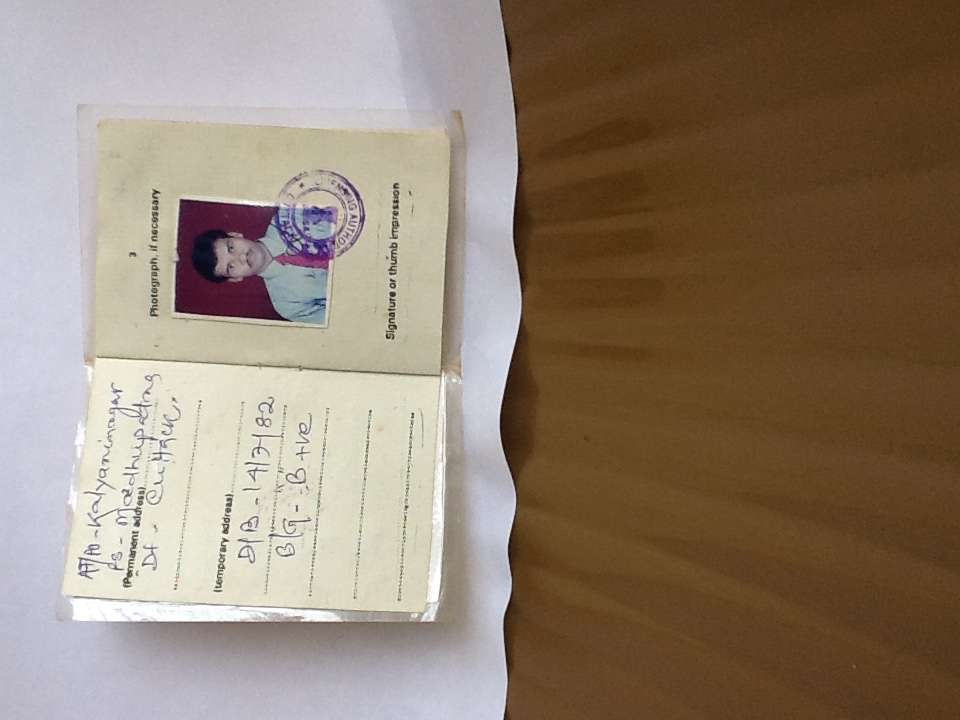 AT/PO - Kalyaninagar
PS - Madhupatna
(Permanent address)
Dt - Cuttack.
(temporary address)
D/B - 14/7/82
B/G - "B" +ve
3
Photograph, if necessary
LICENSING AUTHORITY
CUTTACK
Signature or thumb impression